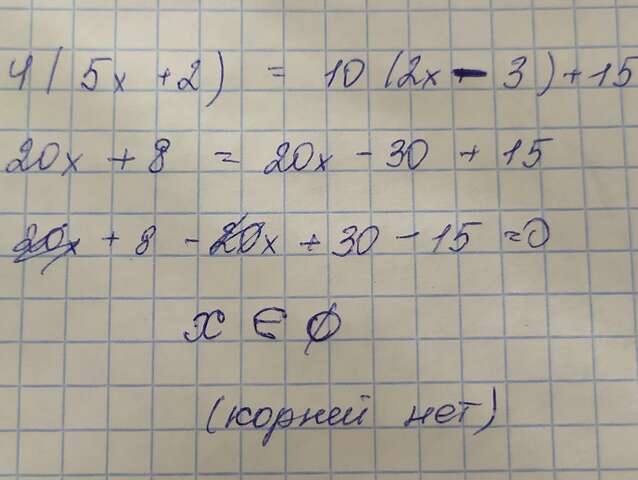 4(5x+2) = 10(2x-3)+15
20x + 8 = 20x - 30 + 15
20x + 8 - 20x + 30 - 15 = 0
x ∈ ∅
(корней нет)